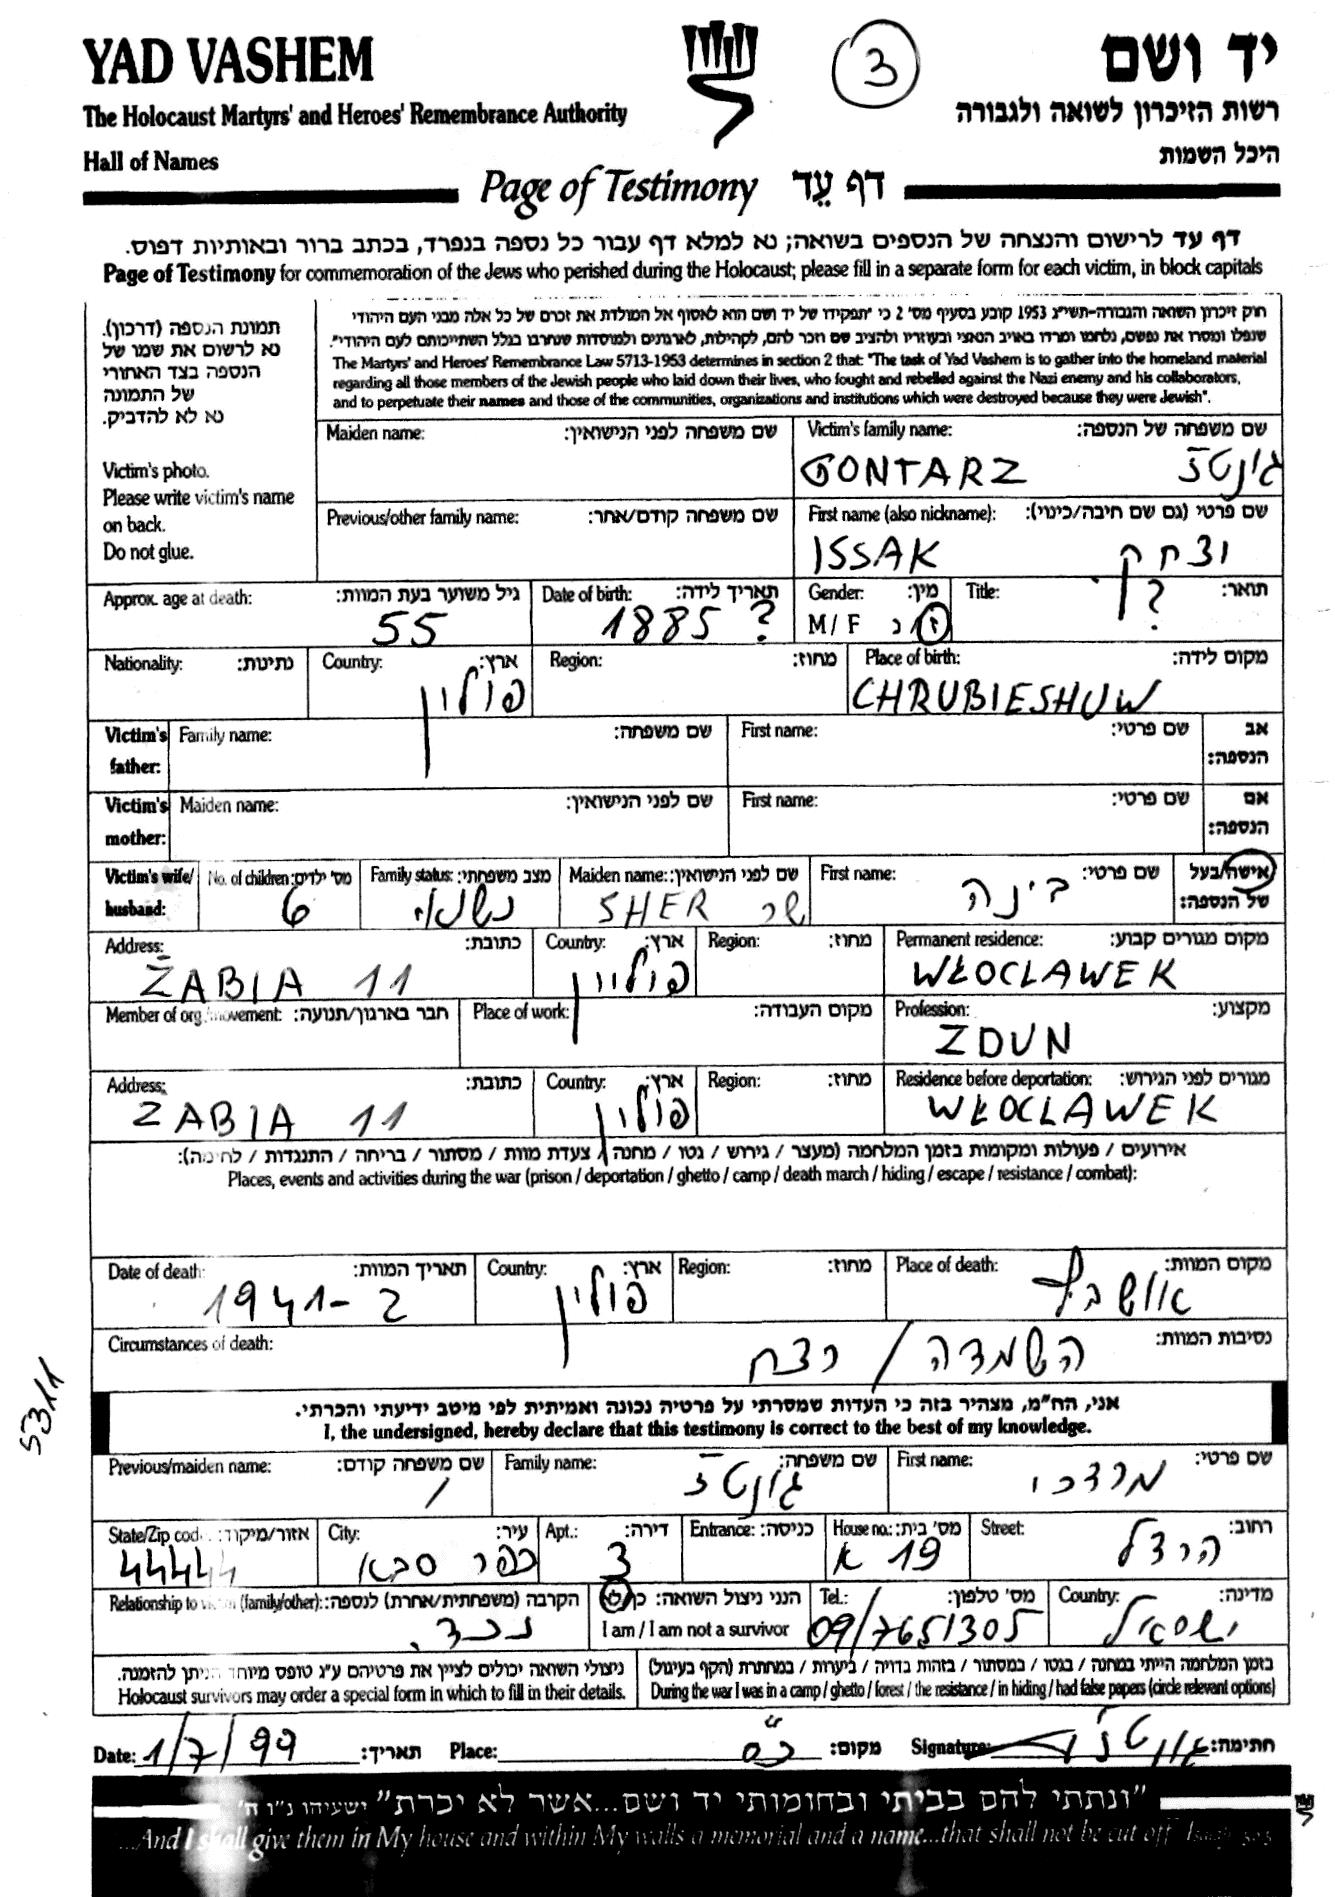 YAD VASHEM
The Holocaust Martyrs' and Heroes' Remembrance Authority
Hall of Names
3
יד ושם
רשות הזיכרון לשואה ולגבורה
היכל השמות
Page of Testimony דף עד
דף עד לרישום והנצחה של הנספים בשואה; נא למלא דף עבור כל נספה בנפרד, בכתב ברור ובאותיות דפוס.
Page of Testimony for commemoration of the Jews who perished during the Holocaust; please fill in a separate form for each victim, in block capitals
תמונת הנספה (דרכון).
נא לרשום את שמו של
הנספה בצד האחורי
של התמונה
נא לא להדביק.
Victim's photo.
Please write victim's name
on back.
Do not glue.
חוק זיכרון השואה והגבורה-תשי"ג 1953 קובע בסעיף מס' 2 כי "תפקידו של יד ושם הוא לאסוף אל המולדת את זכרם של כל אלה מבני העם היהודי
שנפלו ומסרו את נפשם, נלחמו ומרדו באויב הנאצי ובעוזריו ולהציב שם וזכר להם, לקהילות, לארגונים ולמוסדות שנחרבו בגלל השתייכותם לעם היהודי".
The Martyrs' and Heroes' Remembrance Law 5713-1953 determines in section 2 that: "The task of Yad Vashem is to gather into the homeland material
regarding all those members of the Jewish people who laid down their lives, who fought and rebelled against the Nazi enemy and his collaborators,
and to perpetuate their names and those of the communities, organizations and institutions which were destroyed because they were Jewish".
Maiden name: שם משפחה לפני הנישואין: Victim's family name: שם משפחה של הנספה:
GONTARZ
Previous/other family name: שם משפחה קודם/אחר: First name (also nickname): שם פרטי (גם שם חיבה/כינוי):
ISSAK יצחק
Approx. age at death: גיל משוער בעת המוות: Date of birth: תאריך לידה: Gender: מין: Title: תואר:
55 1885 ? M / F ז/נ ?
Nationality: נתינות: Country: ארץ: Region: מחוז: Place of birth: מקום לידה:
פולין CHRUBIESHUW
Victim's father: Family name: שם משפחה: First name: שם פרטי: אב הנספה:
Victim's mother: Maiden name: שם לפני הנישואין: First name: שם פרטי: אם הנספה:
Victim's wife/ husband: No. of children: מס' ילדים: Family status: מצב משפחתי: Maiden name: שם לפני הנישואין: First name: שם פרטי: אישה/בעל של הנספה:
6 נשוי SHER שר בינה
Address: כתובת: Country: ארץ: Region: מחוז: Permanent residence: מקום מגורים קבוע:
ŻABIA 11 פולין WŁOCLAWEK
Member of org./movement: חבר בארגון/תנועה: Place of work: מקום העבודה: Profession: מקצוע:
ZDUN
Address: כתובת: Country: ארץ: Region: מחוז: Residence before deportation: מגורים לפני הגירוש:
ZABIA 11 פולין WŁOCLAWEK
אירועים / פעולות ומקומות בזמן המלחמה (מעצר / גירוש / גטו / מחנה / צעדת מוות / מסתור / בריחה / התנגדות / לחימה):
Places, events and activities during the war (prison / deportation / ghetto / camp / death march / hiding / escape / resistance / combat):
Date of death: תאריך המוות: Country: ארץ: Region: מחוז: Place of death: מקום המוות:
1941-2 פולין אושביץ
Circumstances of death: נסיבות המוות:
השמדה / רצח
5311
אני, הח"מ, מצהיר בזה כי העדות שמסרתי על פרטיה נכונה ואמיתית לפי מיטב ידיעתי והכרתי.
I, the undersigned, hereby declare that this testimony is correct to the best of my knowledge.
Previous/maiden name: שם משפחה קודם: Family name: שם משפחה: First name: שם פרטי:
/ מרדכי
State/Zip code: אזור/מיקוד: City: עיר: Apt.: דירה: Entrance: כניסה: House no.: מס' בית: Street: רחוב:
44444 כפר סבא 3 19 א הרצל
Relationship to victim (family/other): הקרבה (משפחתית/אחרת) לנספה: הנני ניצול השואה: כן/לא Tel.: מס' טלפון: Country: מדינה:
נכד. I am / I am not a survivor 09/7651305 ישראל
ניצולי השואה יכולים לציין את פרטיהם ע"ג טופס מיוחד הניתן להזמנה.
Holocaust survivors may order a special form in which to fill in their details.
בזמן המלחמה הייתי במחנה / בגטו / במסתור / בזהות בדויה / ביערות / במחתרת (הקף בעיגול)
During the war I was in a camp / ghetto / forest / the resistance / in hiding / had false papers (circle relevant options)
Date: 1/7/99 תאריך: Place: כ"ס מקום: Signature: חתימה:
"ונתתי להם בביתי ובחומותי יד ושם...אשר לא יכרת" ישעיהו נ"ו ה'
...And I shall give them in My house and within My walls a memorial and a name...that shall not be cut off Isaiah 56:5